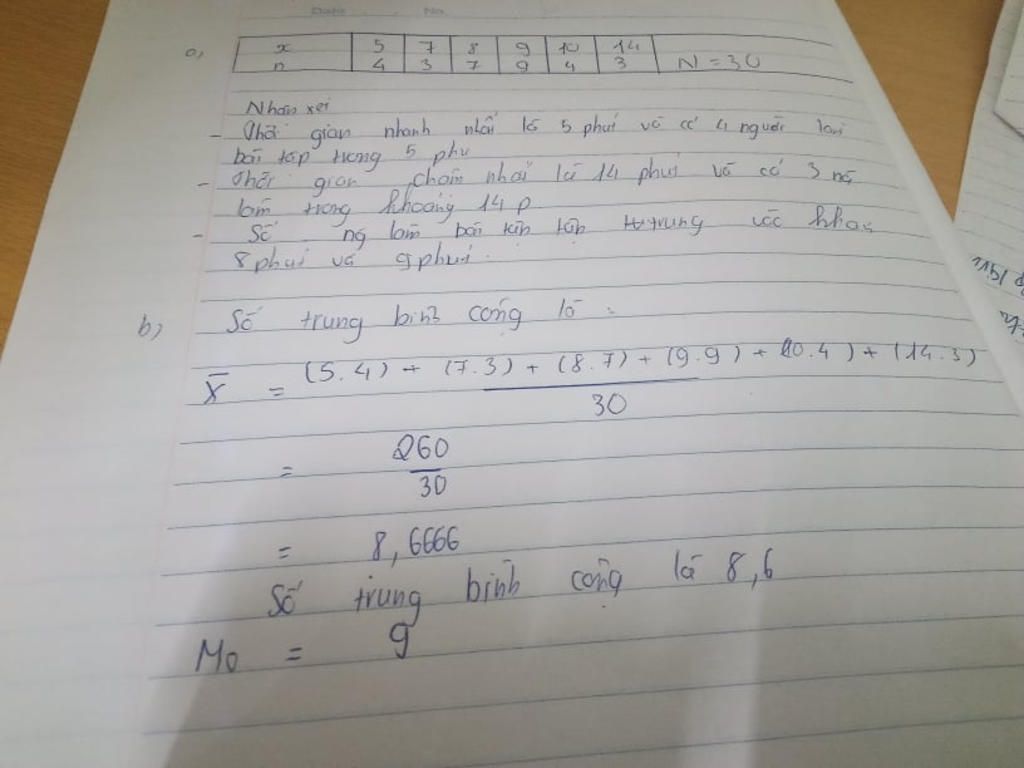 Date No.
a,
x 5 7 8 9 10 14
n 4 3 7 9 4 3 N = 30
Nhận xét
- Thời gian nhanh nhất là 5 phút và có 4 người làm
bài tập trong 5 phú
- Thời gian chậm nhất là 14 phút và có 3 ng
làm trong khoảng 14 p
- Số ng làm bài tập tập trung vào khoả
8 phút và 9 phút.
b) Số trung bình cộng là :
X̄ = (5.4) + (7.3) + (8.7) + (9.9) + 10.4) + (14.3)
30
= 260
30
= 8,6666
Số trung bình cộng là 8,6
Mo = 9